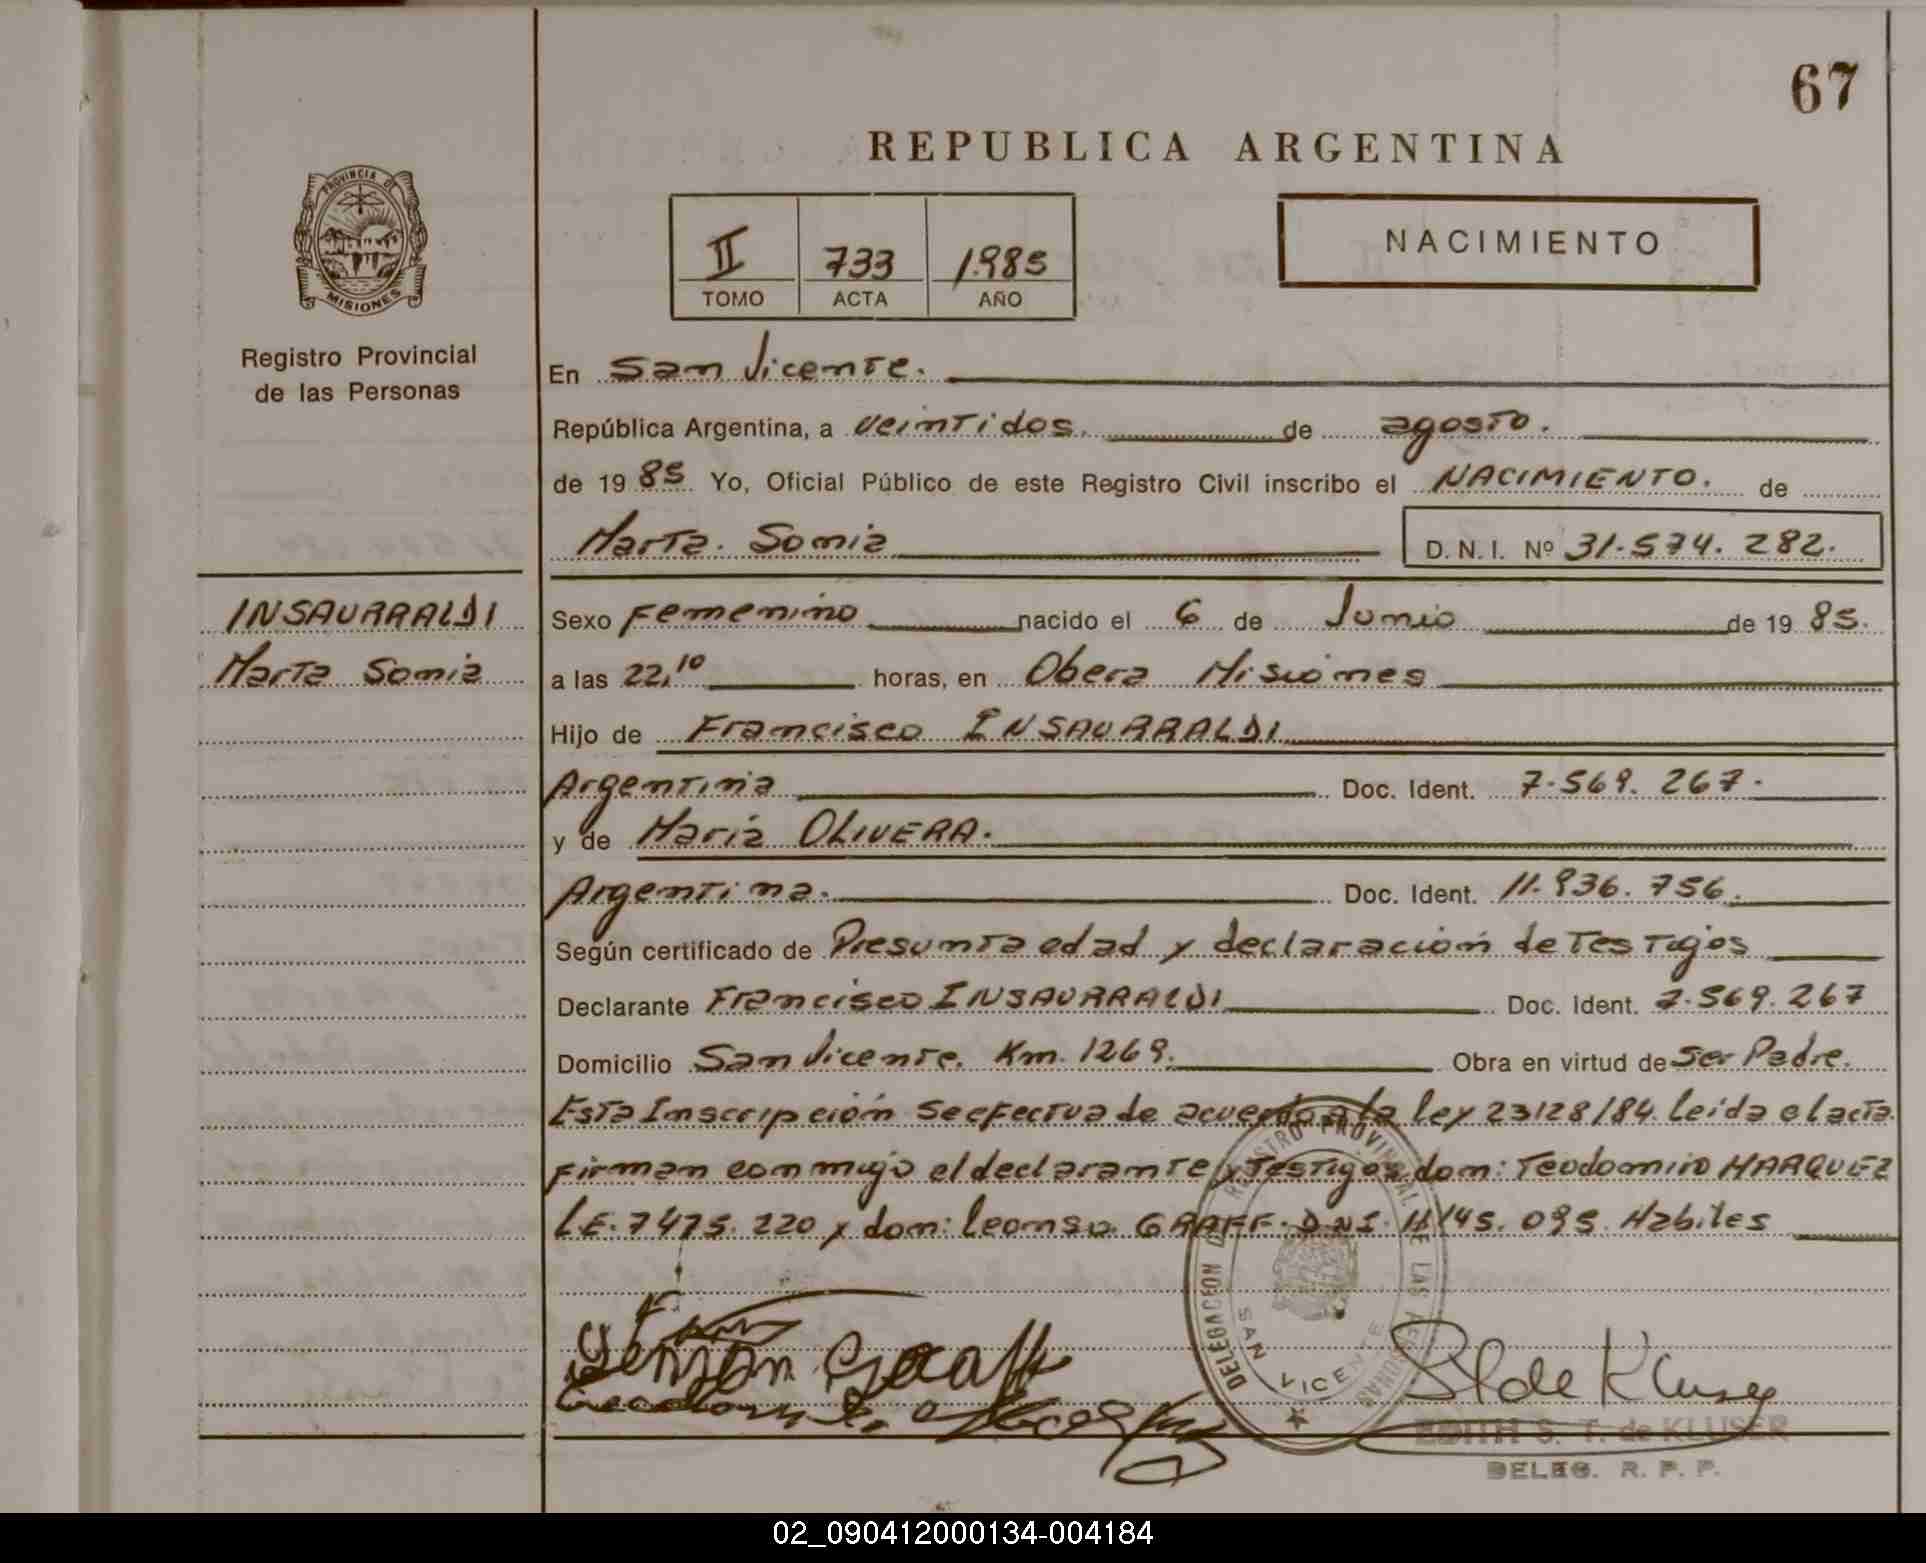 67
REPUBLICA ARGENTINA
PROVINCIA DE
MISIONES
Registro Provincial
de las Personas
II 733 1.985
TOMO ACTA AÑO
NACIMIENTO
En San Vicente.
República Argentina, a veintidos. de agosto.
de 19 85 Yo, Oficial Público de este Registro Civil inscribo el NACIMIENTO. de
Marta. Sonia D.N.I. Nº 31.574.282.
INSAURRALDI
Marta Sonia
Sexo Femenino nacido el 6 de Junio de 19 85.
a las 22,10 horas, en Obera Misiones
Hijo de Francisco INSAURRALDI
Argentina Doc. Ident. 7.569.267.
y de Maria OLIVERA.
Argentina. Doc. Ident. 11.936.756.
Según certificado de Presunta edad y declaración de Testigos
Declarante Francisco INSAURRALDI Doc. Ident. 7.569.267
Domicilio San Vicente. Km. 1269. Obra en virtud de Ser Padre.
Esta Inscripción se efectua de acuerdo a la ley 23128/84. Leida el acta
firman conmigo el declarante y Testigos don: Teodomiro MARQUEZ
L.E. 7475.220 y don: Leonso GRAFF. D.N.I. 11.145.095. Habiles
DELEGACION DEL REGISTRO PROVINCIAL DE LAS PERSONAS
SAN VICENTE
EDITH S. T. de KLUSER
DELEG. R. P. P.
02_090412000134-004184